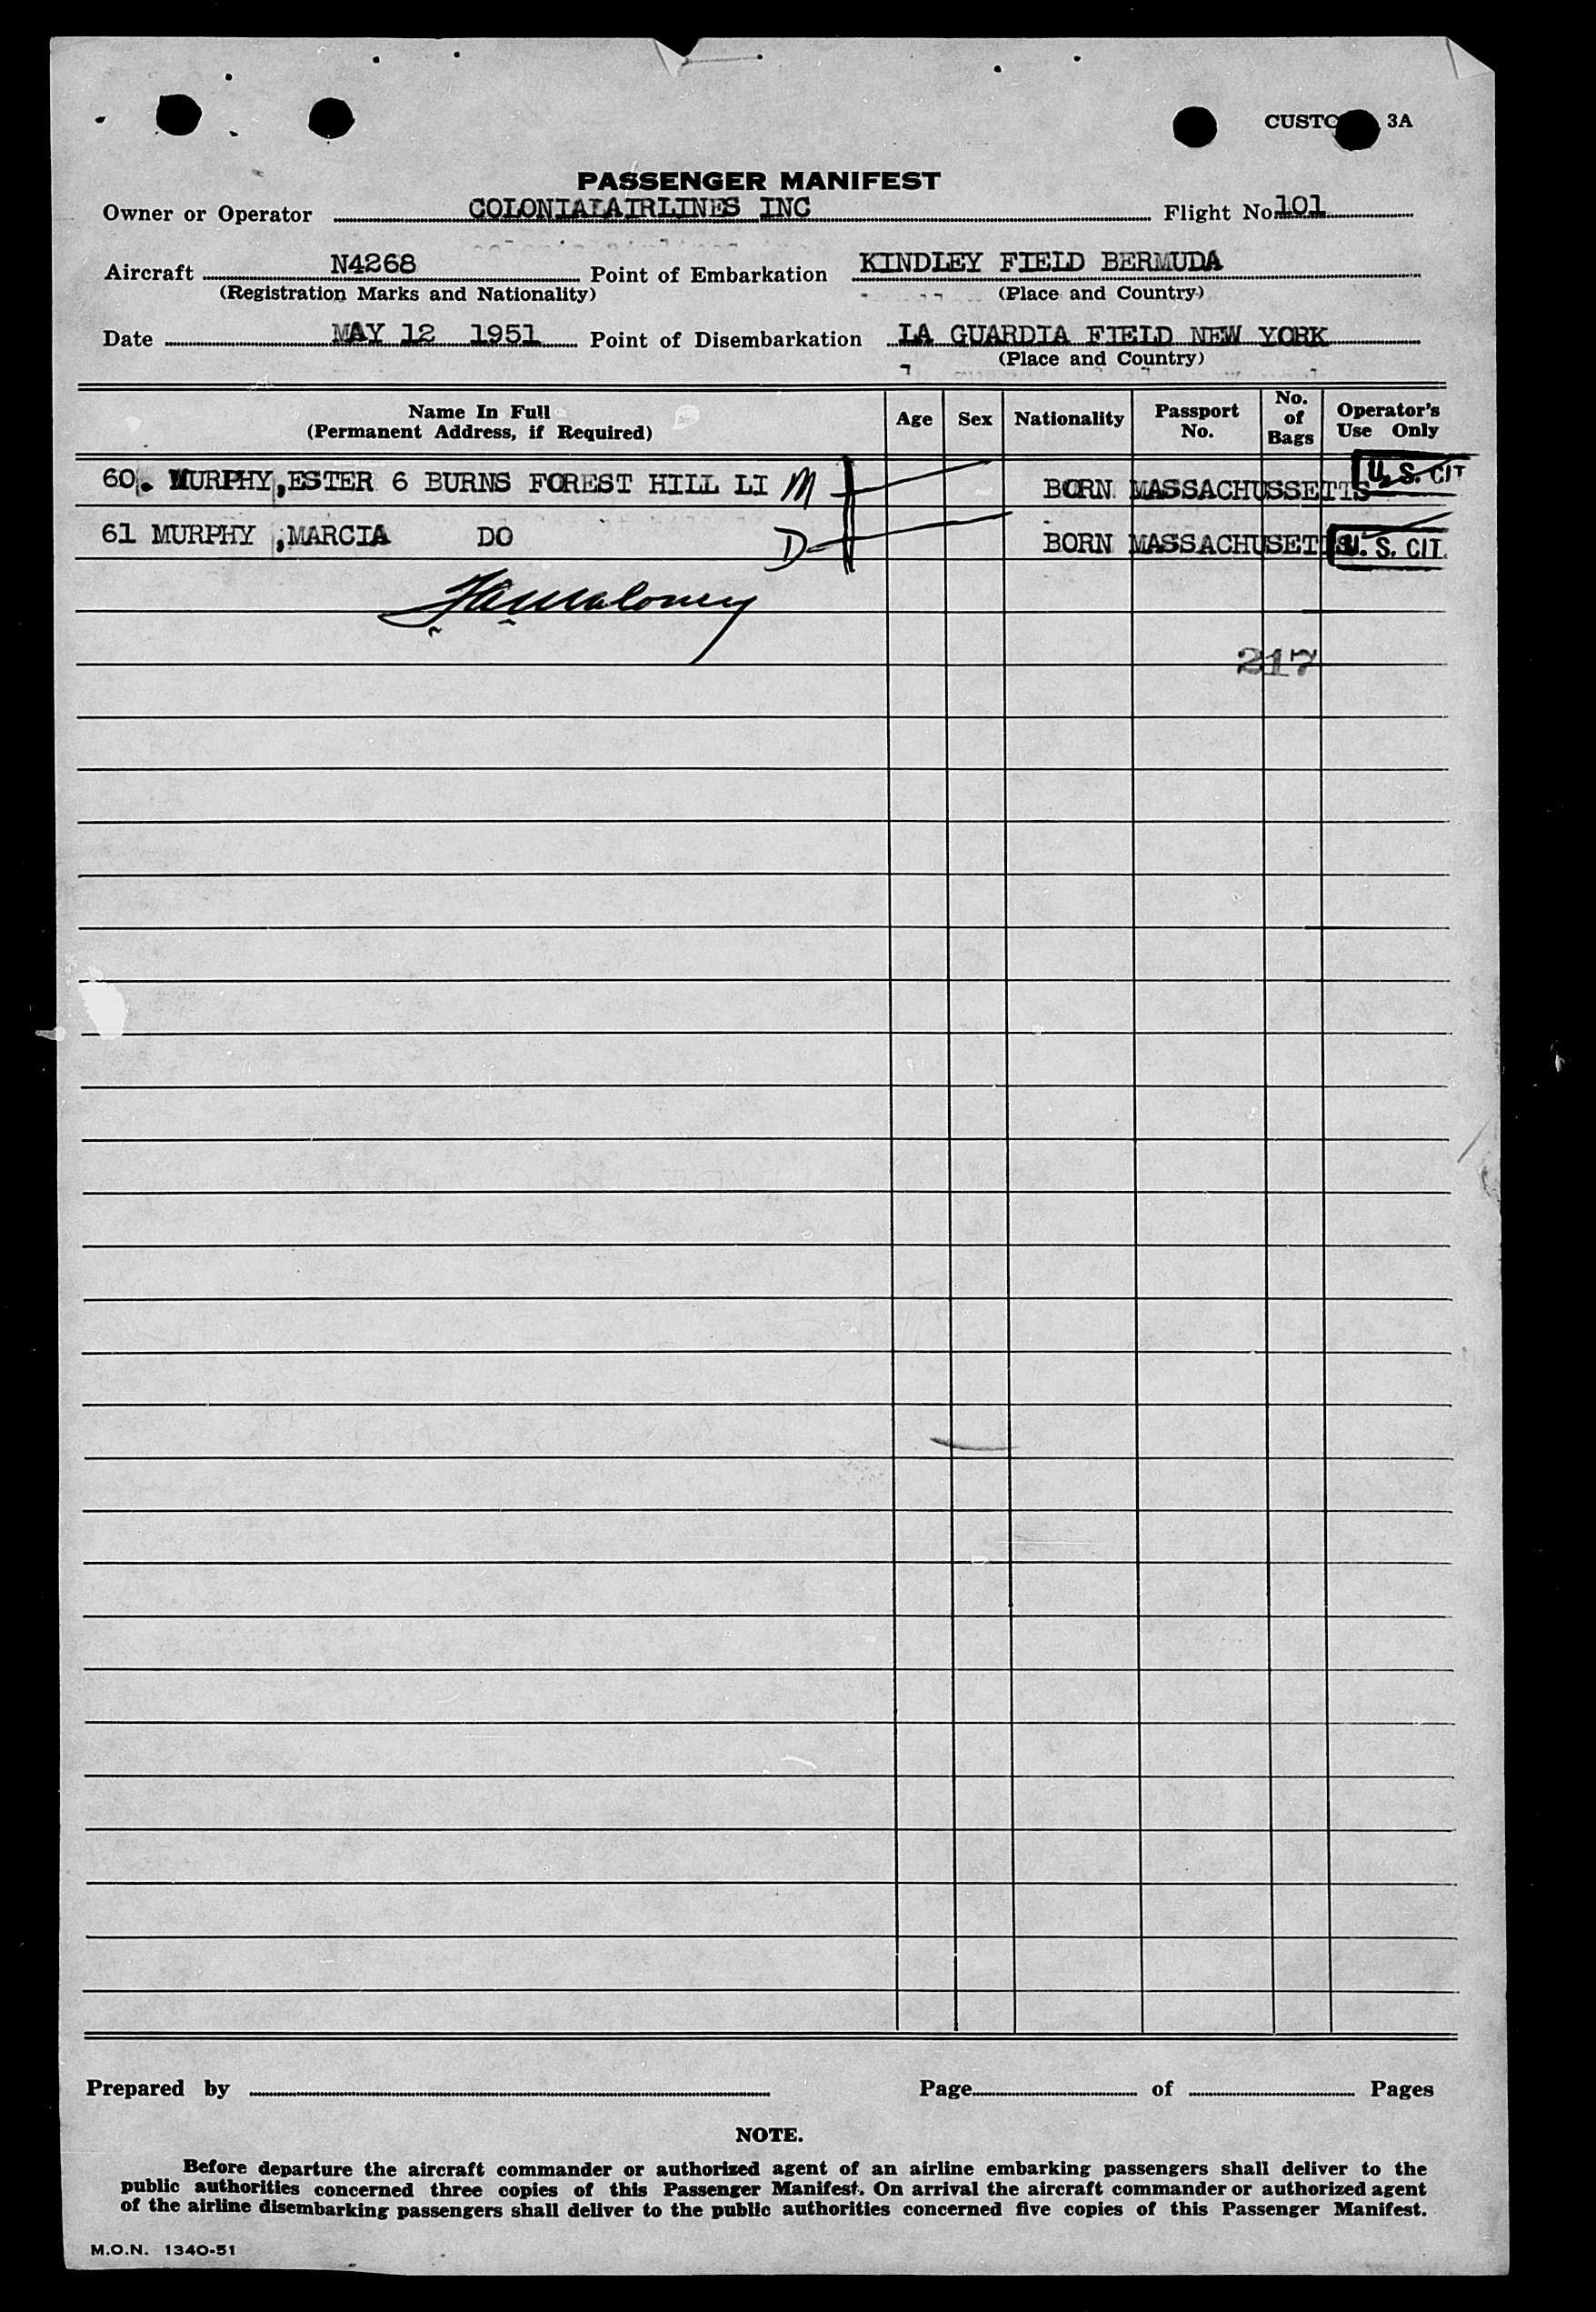 CUSTO 3A
PASSENGER MANIFEST
Owner or Operator COLONIALAIRLINES INC Flight No. 101
Aircraft N4268 Point of Embarkation KINDLEY FIELD BERMUDA
(Registration Marks and Nationality) (Place and Country)
Date MAY 12 1951 Point of Disembarkation LA GUARDIA FIELD NEW YORK
(Place and Country)
Name In Full (Permanent Address, if Required) Age Sex Nationality Passport No. No. of Bags Operator's Use Only
60. MURPHY,ESTER 6 BURNS FOREST HILL LI M BORN MASSACHUSSETTS U.S. CIT
61 MURPHY ,MARCIA DO D BORN MASSACHUSETTS U.S. CIT.
217
Prepared by Page of Pages
NOTE.
Before departure the aircraft commander or authorized agent of an airline embarking passengers shall deliver to the
public authorities concerned three copies of this Passenger Manifest. On arrival the aircraft commander or authorized agent
of the airline disembarking passengers shall deliver to the public authorities concerned five copies of this Passenger Manifest.
M.O.N. 1340-51